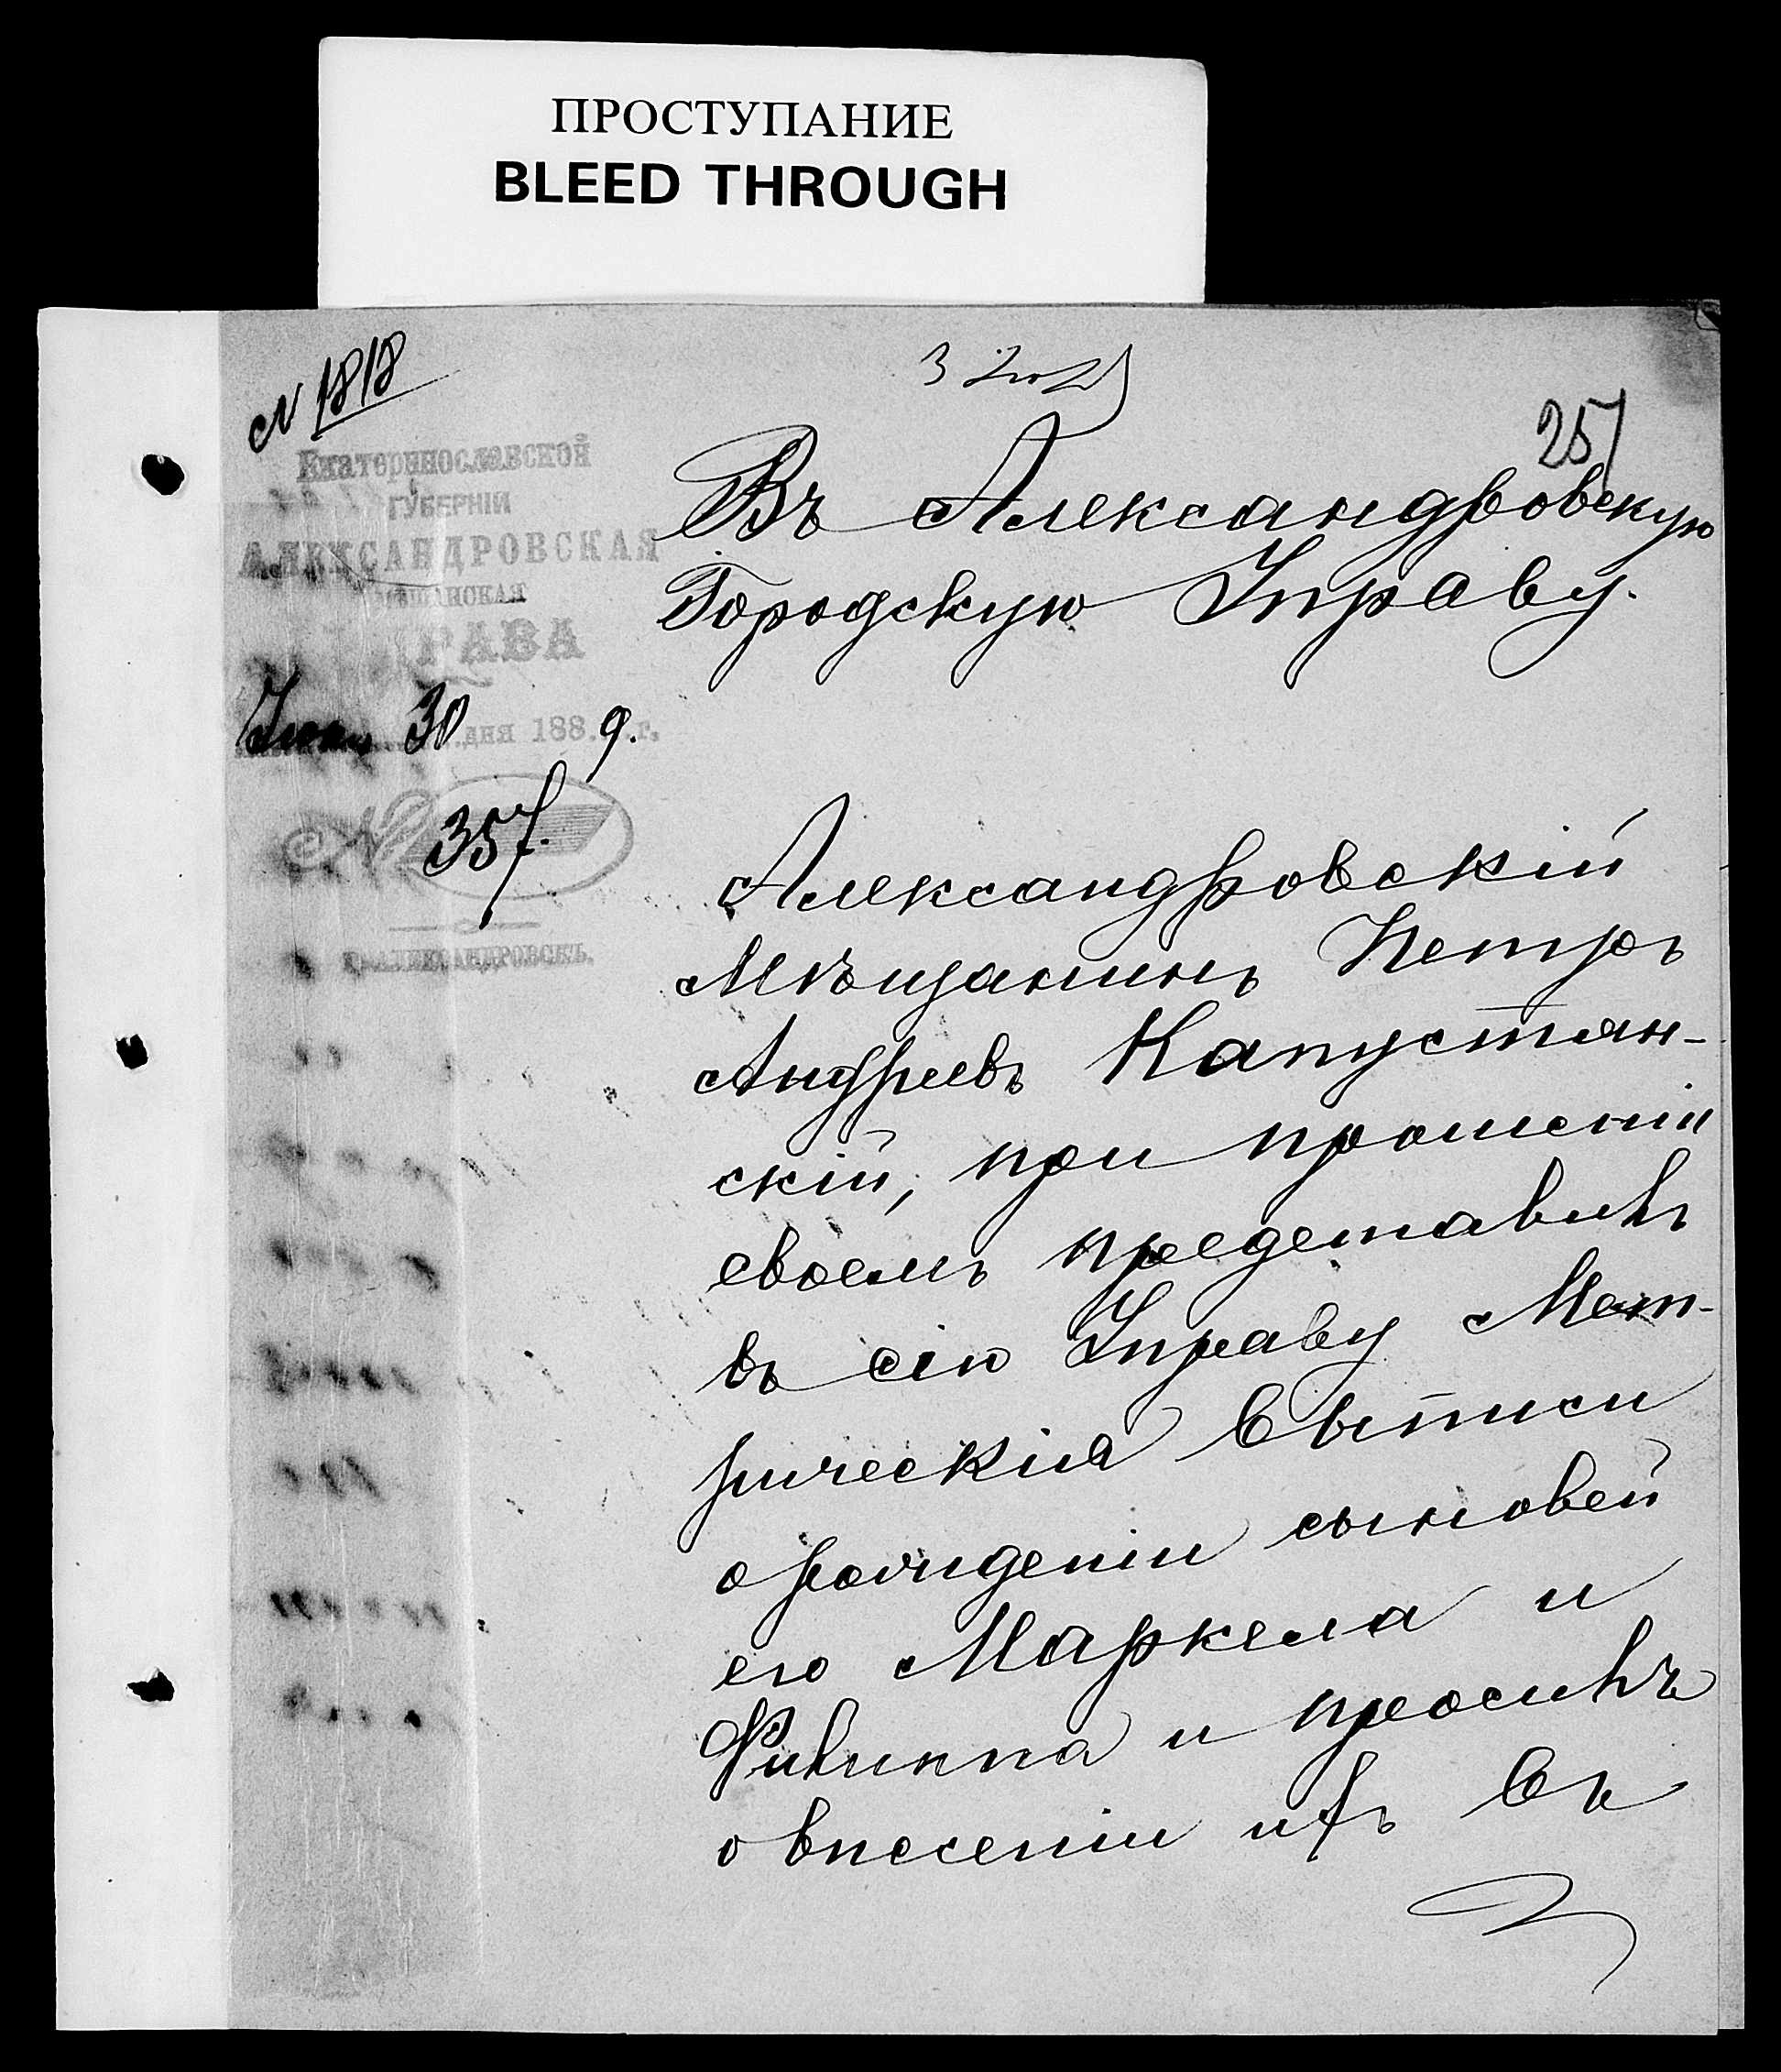 ПРОСТУПАНИЕ
BLEED THROUGH
№ 1818
257
Екатеринославской
ГУБЕРНІИ
АЛЕКСАНДРОВСКАЯ
МѢЩАНСКАЯ
УПРАВА
30 дня 1889 г.
№ 357.
Г. АЛЕКСАНДРОВСКЪ.
Въ Александровскую
Городскую Управу.
Александровскій
Мѣщанинъ Петръ
Андреевъ Капустян-
скій, при прошеніи
своемъ представилъ
въ сію Управу Мет-
рическія выписи
о рожденіи сыновей
его Маркела и
Филиппа и проситъ
о внесеніи ихъ въ